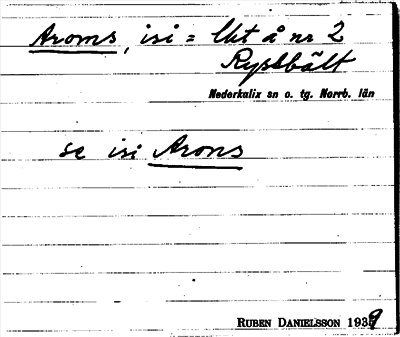 Aroms, isi = lkt å nr 2
Rypsbält
Nederkalix sn o. tg. Norrb. län
se isi Arons
RUBEN DANIELSSON 1939